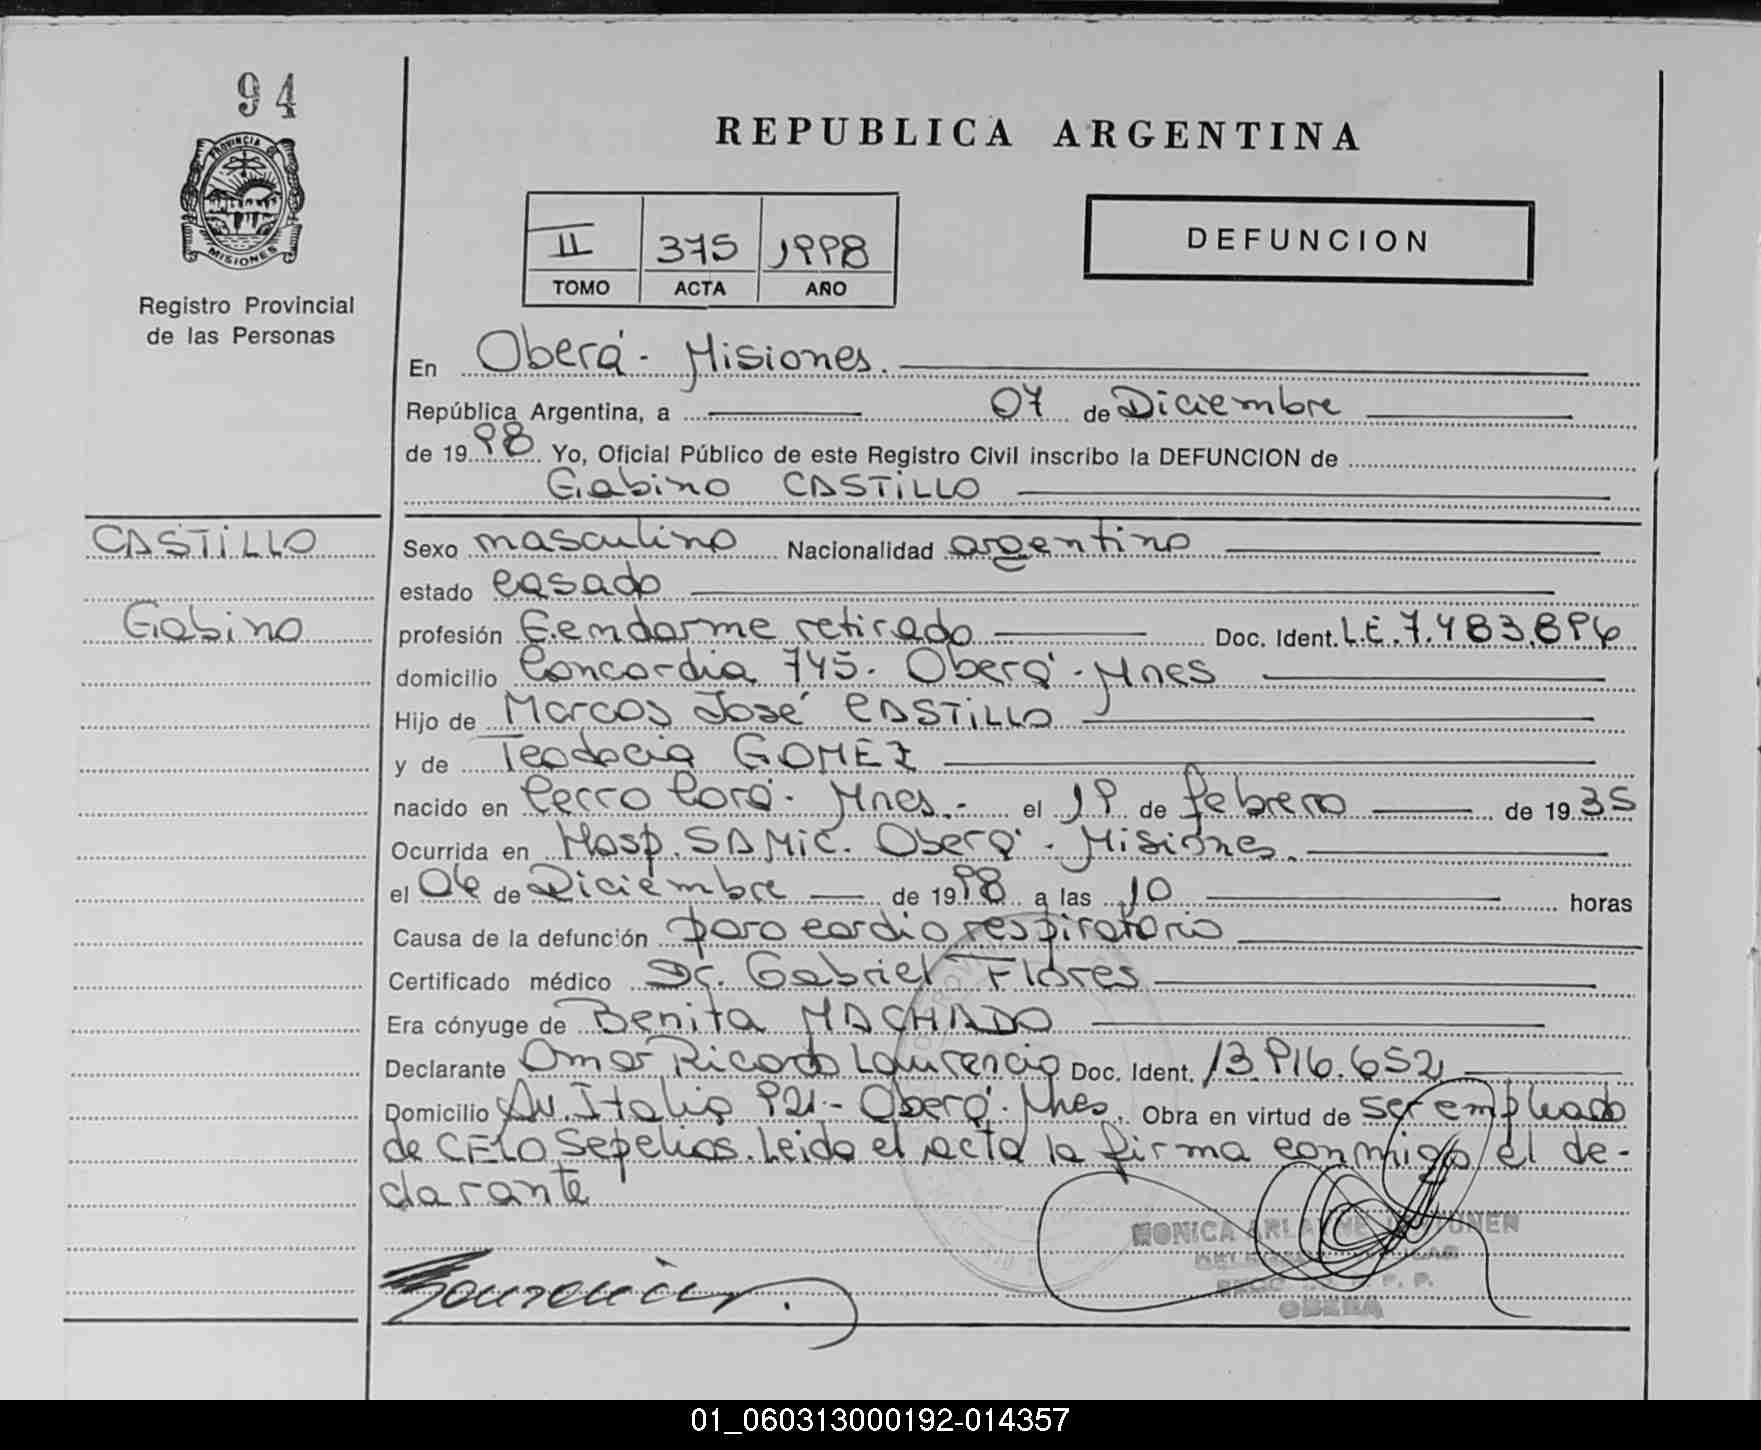 94
PROVINCIA DE
MISIONES
Registro Provincial
de las Personas
REPUBLICA ARGENTINA
II 375 1998
TOMO ACTA AÑO
DEFUNCION
En Oberá - Misiones.
República Argentina, a 07 de Diciembre
de 19 98 Yo, Oficial Público de este Registro Civil inscribo la DEFUNCION de
Gabino CASTILLO
CASTILLO
Gabino
Sexo masculino Nacionalidad argentino
estado casado
profesión Gendarme retirado Doc. Ident. L.E. 7.483.896
domicilio Concordia 745. Oberá - Mnes
Hijo de Marcos José CASTILLO
y de Teodocia GOMEZ
nacido en Cerro Corá. Mnes.- el 19 de febrero de 19 35
Ocurrida en Hosp. SAMIC. Oberá. Misiones.
el 06 de Diciembre de 19 98 a las 10 horas
Causa de la defunción paro cardio respiratorio
Certificado médico Dr. Gabriel Flores
Era cónyuge de Benita MACHADO
Declarante Omar Ricardo Laurencio Doc. Ident. 13.916.652
Domicilio Av. Italia 921 - Oberá. Mnes. Obra en virtud de ser empleado
de CELO Sepelios. Leida el acta la firma conmigo el de-
clarante
MONICA
OBERA
01_060313000192-014357